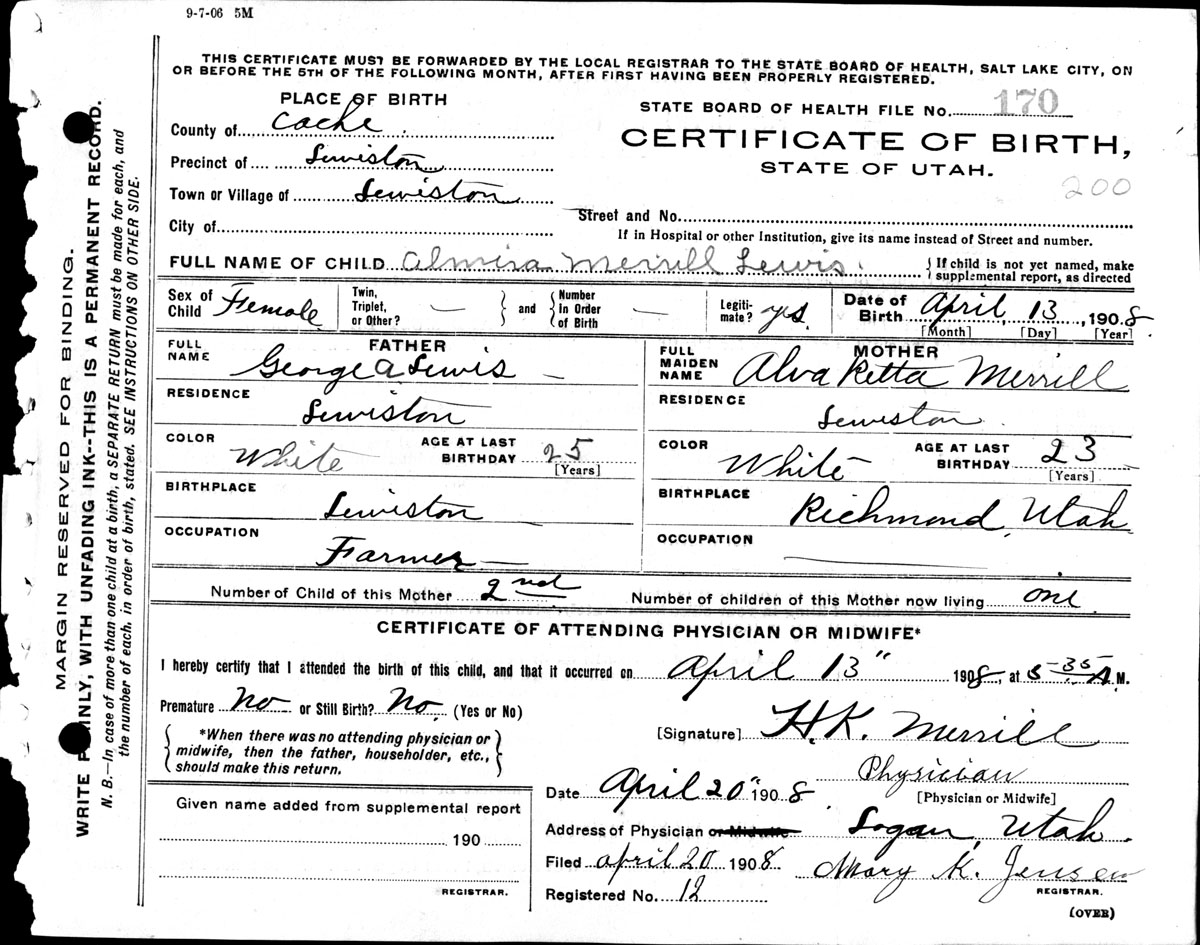 9-7-06 5M
THIS CERTIFICATE MUST BE FORWARDED BY THE LOCAL REGISTRAR TO THE STATE BOARD OF HEALTH, SALT LAKE CITY, ON
OR BEFORE THE 5TH OF THE FOLLOWING MONTH, AFTER FIRST HAVING BEEN PROPERLY REGISTERED.
PLACE OF BIRTH
STATE BOARD OF HEALTH FILE No. 170
County of Cache
CERTIFICATE OF BIRTH,
Precinct of Lewiston
STATE OF UTAH.
200
Town or Village of Lewiston
Street and No.
City of
If in Hospital or other Institution, give its name instead of Street and number.
FULL NAME OF CHILD Almira Merrill Lewis. {If child is not yet named, make
supplemental report, as directed
Sex of Child Female
Twin, Triplet, or Other? — } and { Number In Order of Birth —
Legiti-mate? yes
Date of Birth April 13, 1908.
[Month] [Day] [Year]
FATHER
FULL NAME George A Lewis —
RESIDENCE
Lewiston
COLOR White
AGE AT LAST BIRTHDAY 25
[Years]
BIRTHPLACE
Lewiston
OCCUPATION
Farmer —
MOTHER
FULL MAIDEN NAME Alva Retta Merrill
RESIDENCE
Lewiston
COLOR White
AGE AT LAST BIRTHDAY 23
[Years]
BIRTHPLACE Richmond, Utah
OCCUPATION
Number of Child of this Mother 2nd Number of children of this Mother now living one
CERTIFICATE OF ATTENDING PHYSICIAN OR MIDWIFE*
I hereby certify that I attended the birth of this child, and that it occurred on April 13" 1908, at 5-35 A.M.
Premature No or Still Birth? No. (Yes or No)
*When there was no attending physician or
midwife, then the father, householder, etc.,
should make this return.
[Signature] H.K. Merrill
Physician
[Physician or Midwife]
Date April 20" 1908
Address of Physician or Midwife Logan, Utah.
Filed april 20 1908 Mary K. Jensen
REGISTRAR.
Registered No. 12
(OVER)
Given name added from supplemental report
190
REGISTRAR.
MARGIN RESERVED FOR BINDING.
WRITE PLAINLY, WITH UNFADING INK--THIS IS A PERMANENT RECORD.
N. B.—In case of more than one child at a birth, a SEPARATE RETURN must be made for each, and
the number of each, in order of birth, stated. SEE INSTRUCTIONS ON OTHER SIDE.